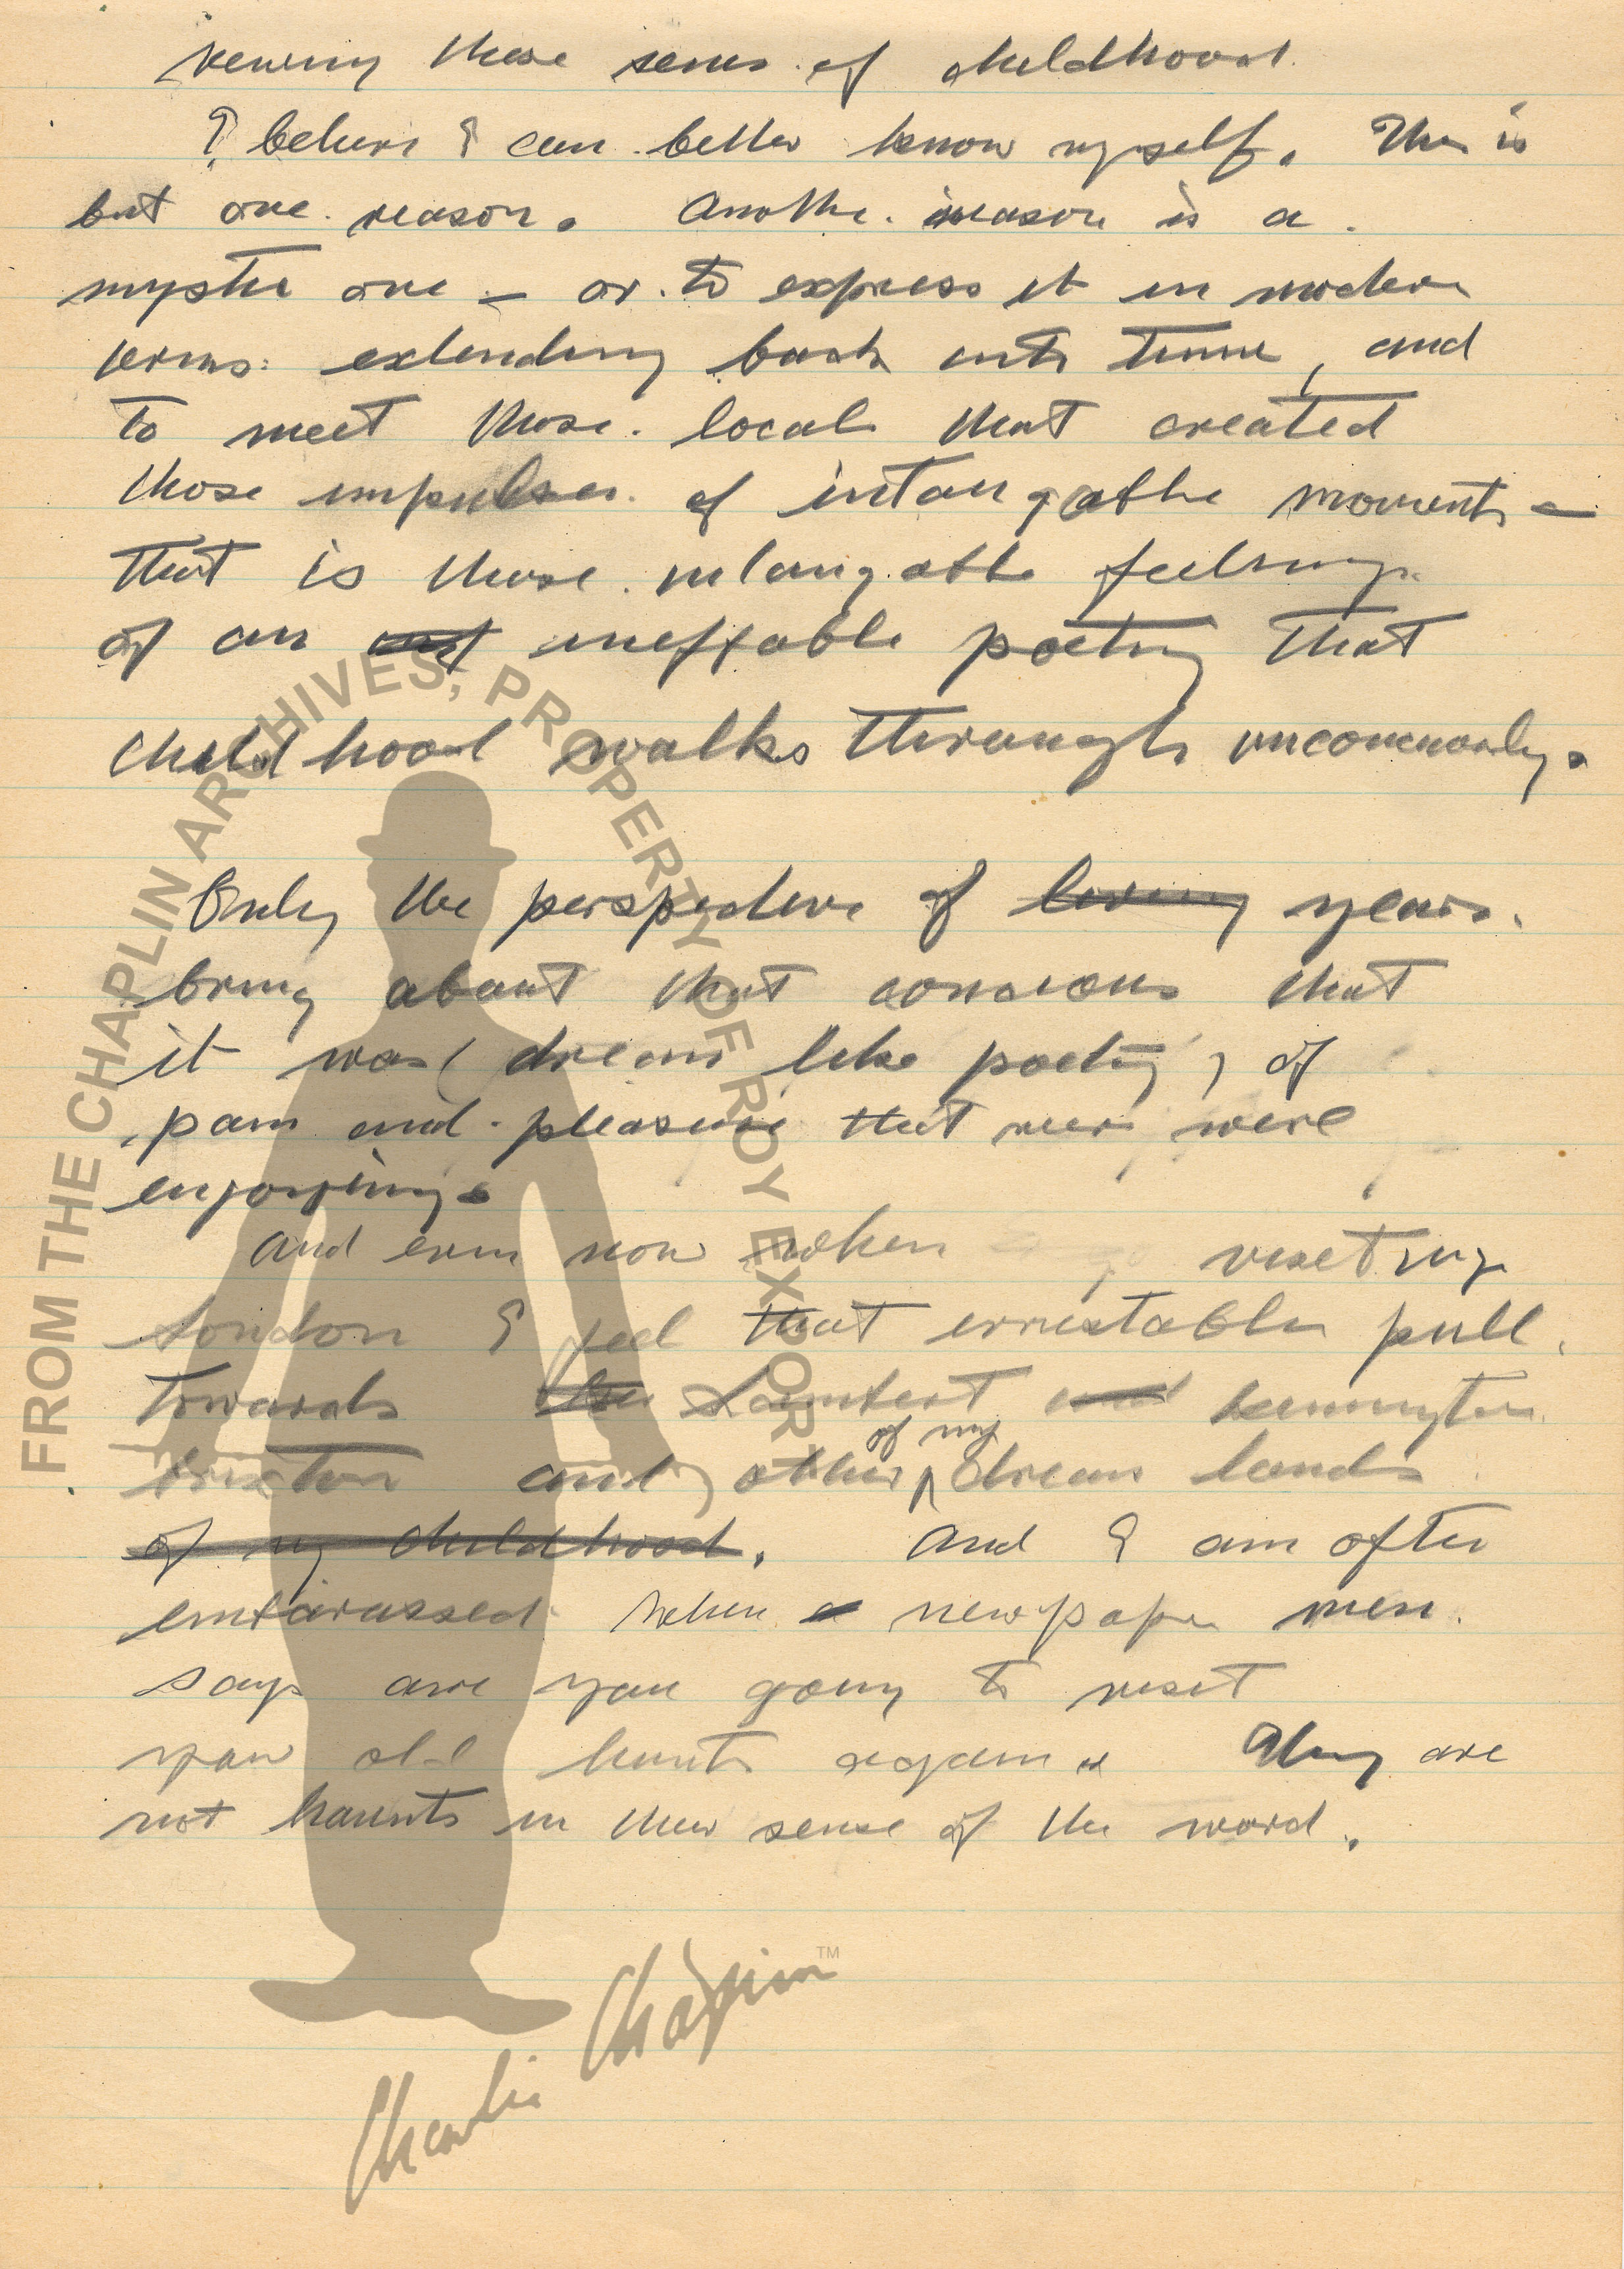 viewing these senes of childhood.
I believe I can better know myself. This is
but one reason. Another reason is a
mystic one – or to express it in modern
terms: extending back into time, and
to meet those locals that created
those impulses of intangable moments –
that is those intangable feelings
of an ineffable poetry that
childhood walks through
Only the perspective of living years
bring about that conscious that
it was (dream like poetry) of
pain and pleasure that were
enjoying.
And even now when visiting
London I feel that irrestable pull
towards the Lambert and Kennington
Brixton and other of my dream lands
of my childhood. And I am often
embarassed when a newspaper men
says are you going to visit
your old hunts again. They are
not haunts in their sense of the word.
FROM THE CHAPLIN ARCHIVES, PROPERTY OF ROY EXPORT
Charlie Chaplin™